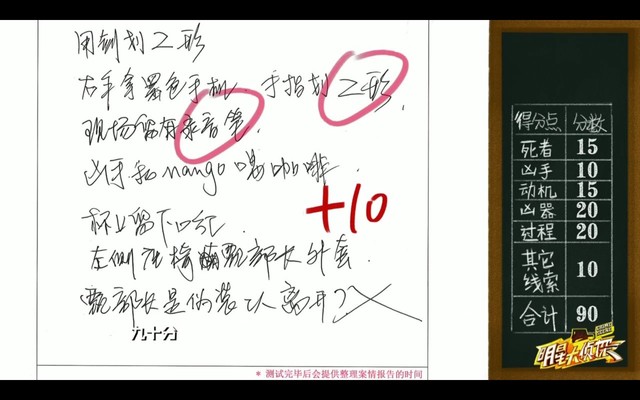 用剑划Z形
右手拿黑色手机，手指划Z形，
现场留有录音笔，
凶手和nango喝咖啡，
杯上留下口红，
左侧洗手间甄部长外套，
甄部长是伪装以离开
+10
九十分
* 测试完毕后会提供整理案情报告的时间
得分点 分数
死者 15
凶手 10
动机 15
凶器 20
过程 20
其它线索 10
合计 90
明星大侦探